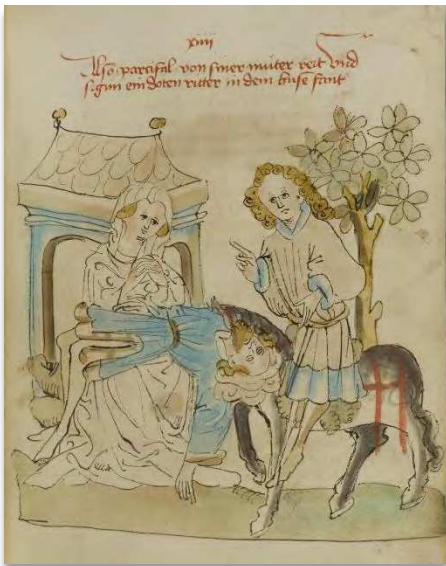 xiiii
Also parcifal von siner muter reit vnd
sigun ein doten ritter in dem fant